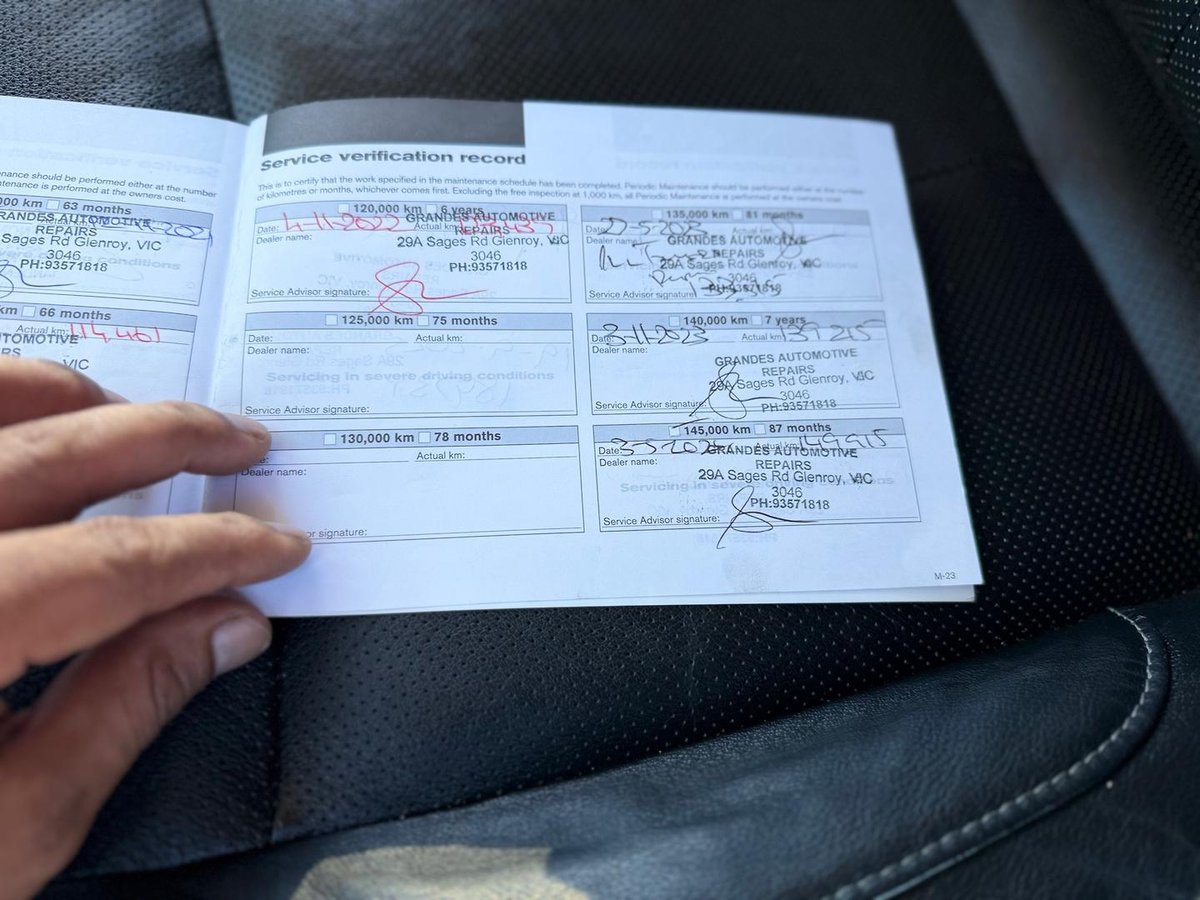 nance should be performed either at the number
ntenance is performed at the owners cost.
00 km 63 months
GRANDES AUTOMOTIVE
REPAIRS
Sages Rd Glenroy, VIC
3046
PH:93571818
km 66 months
Actual km: 114,461
AUTOMOTIVE
VIC
Service verification record
This is to certify that the work specified in the maintenance schedule has been completed. Periodic Maintenance should be performed either at the number
of kilometres or months, whichever comes first. Excluding the free inspection at 1,000 km, all Periodic Maintenance is performed at the owners cost.
120,000 km 6 years
Date: 4-11-2022 Actual km:
Dealer name:
GRANDES AUTOMOTIVE
REPAIRS
29A Sages Rd Glenroy, VIC
3046
PH:93571818
Service Advisor signature:
125,000 km 75 months
Date: Actual km:
Dealer name:
Servicing in severe driving conditions
Service Advisor signature:
130,000 km 78 months
Actual km:
Dealer name:
or signature:
135,000 km 81 months
Date: Actual km:
Dealer name:
GRANDES AUTOMOTIVE
REPAIRS
29A Sages Rd Glenroy, VIC
3046
PH:93571818
Service Advisor signature:
140,000 km 7 years
Date: 3-11-2023 Actual km: 139215
Dealer name:
GRANDES AUTOMOTIVE
REPAIRS
29A Sages Rd Glenroy, VIC
3046
PH:93571818
Service Advisor signature:
145,000 km 87 months
Date: Actual km:
Dealer name:
GRANDES AUTOMOTIVE
REPAIRS
29A Sages Rd Glenroy, VIC
3046
PH:93571818
Service Advisor signature:
M-23